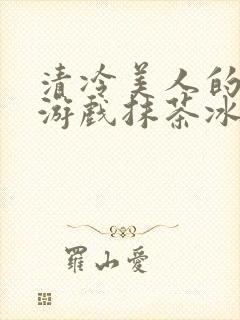 清冷美人的
游戏抹茶冰
羅山愛